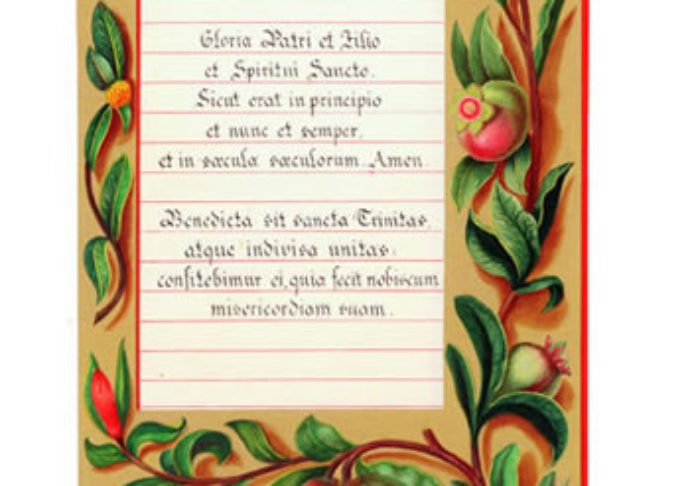 Gloria Patri et Filio
et Spiritui Sancto.
Sicut erat in principio
et nunc et semper,
et in sæcula sæculorum Amen.
Benedicta sit sancta Trinitas,
atque indivisa unitas:
confitebimur ei, quia fecit nobiscum
misericordiam suam.